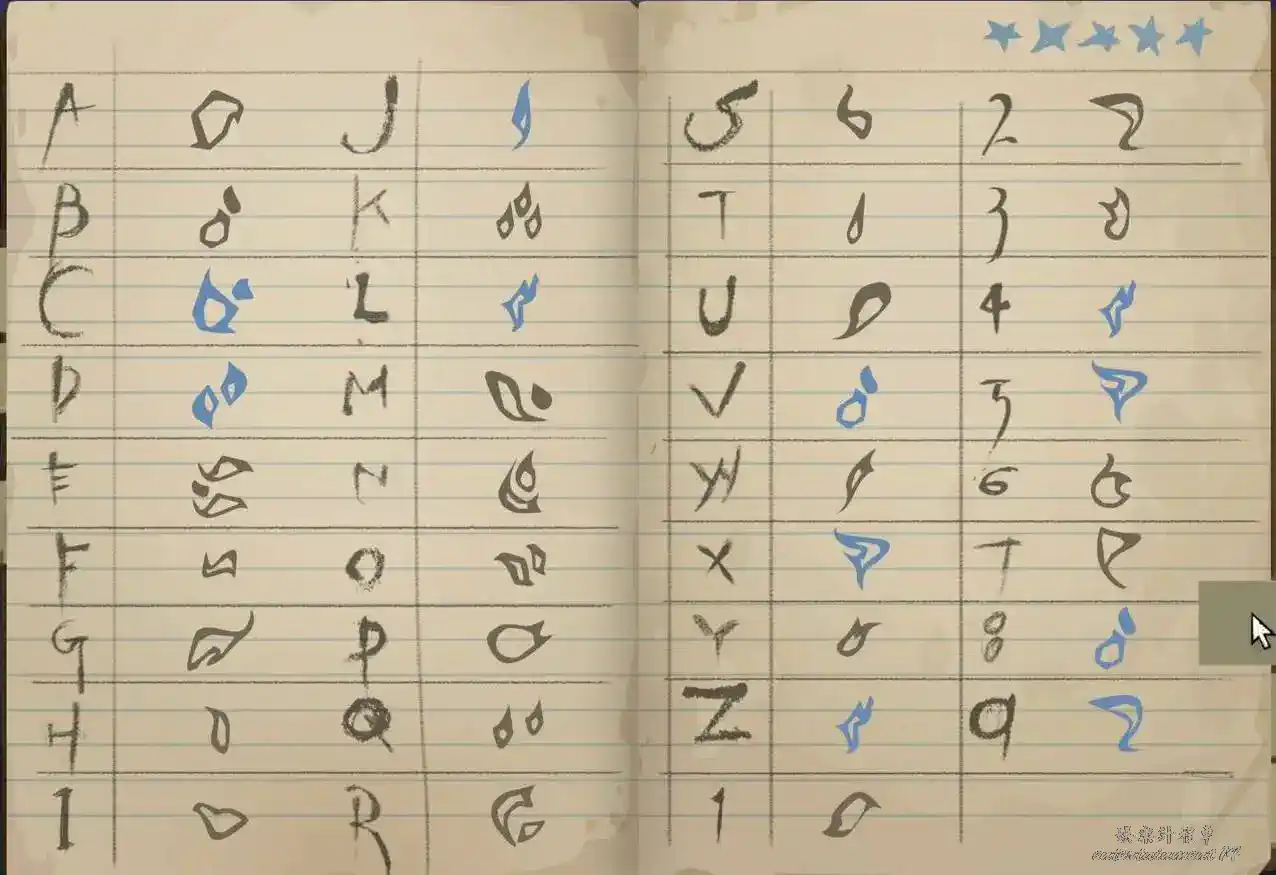 A J S 2
B K T 3
C L U 4
D M V 5
E N W 6
F O X 7
G P Y 8
H Q Z 9
I R 1